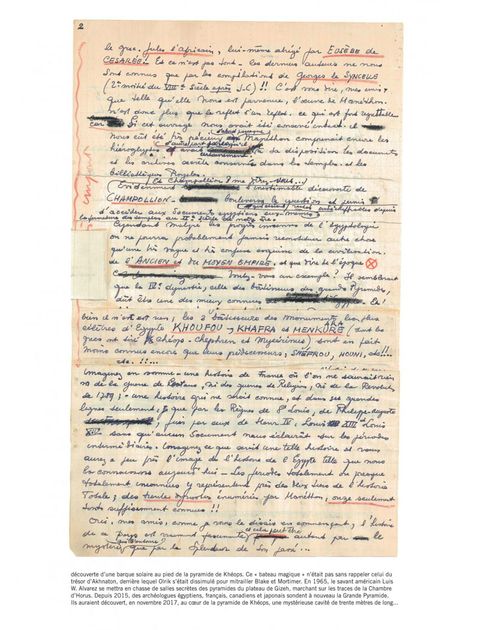 2
le grec Jules l'africain, lui-même abrégé par EUSÈBE de
CESARÉE! Et ce n'est pas tout - les derniers auteurs ne nous
sont connus que par les compilations de Georges le SYNCELLE
(2e moitié du VIIIe siècle après J-C) !!! C'est vous dire, mes amis,
que telle qu'elle nous est parvenue, l'œuvre de Manéthon
n'est donc plus que le reflet d'un reflet, ce qui est fort regrettable
car si cet ouvrage nous avait été conservé entier, il
nous eût été très précieux Manéthon comprenait encore les
hiéroglyphes à sa disposition les documents
et les archives conservés dans les temples et les
bibliothèques Royales.
Et Champollion ? me direz-vous...!
Evidemment l'inestimable découverte de
CHAMPOLLION bouleversa la question et permit
d'accéder aux documents égyptiens eux-mêmes
la fermeture des temples au
Cependant malgré les progrès immenses de l'Egyptologie
on ne pourra probablement jamais reconstituer autre chose
qu'une très vague et très confuse esquisse de la civilisation
de l'ANCIEN et du MOYEN EMPIRE, et que dire de l'époque
Voulez-vous un exemple ? Il semblerait
que la IVe dynastie, celle des bâtisseurs des grandes Pyramides,
dût être une des mieux connues Eh!
bien il n'en est rien, les 3 bâtisseurs des monuments les plus
célèbres d'Egypte KHOUFOU, KHAFRA et MENKURÉ (dont les
grecs ont tiré Chéops - Chephren et Mycérinus) sont en fait
moins connus encore que leurs prédécesseurs, SNEFROU, HOUNI, etc!!..
etc..!!...
Imaginez en somme - une histoire de France où l'on ne saurait rien
ni de la guerre de Cent ans, ni des guerres de Religion, ni de la Révolution
de 1789; - une histoire qui ne serait connue, et dans ses grandes
lignes seulement, que par les Règnes de St Louis, de Philippe Auguste
puis par ceux de Henri IV, Louis XIII et Louis
XVI sans qu'aucun document nous éclairât sur les périodes
intermédiaires. Imaginez ce que serait une telle histoire et vous
aurez à peu près l'image de l'histoire de l'Egypte telle que nous
la connaissons aujourd'hui - Les périodes totalement ou presque
totalement inconnues y représentent près des deux tiers de l'histoire
Totale; des trente dynasties énumérées par Manéthon, onze seulement
sont suffisamment connues !!
Oui, mes amis, comme je vous le disais en commençant, l'histoire
de ce pays est vraiment fascinante autant par le
mystère que par la splendeur de son passé...
découverte d'une barque solaire au pied de la pyramide de Khéops. Ce « bateau magique » n'était pas sans rappeler celui du
trésor d'Akhnaton, derrière lequel Olrik s'était dissimulé pour mitrailler Blake et Mortimer. En 1965, le savant américain Luis
W. Alvarez se mettra en chasse de salles secrètes des pyramides du plateau de Gizeh, marchant sur les traces de la Chambre
d'Horus. Depuis 2015, des archéologues égyptiens, français, canadiens et japonais sondent à nouveau la Grande Pyramide.
Ils auraient découvert, en novembre 2017, au cœur de la pyramide de Khéops, une mystérieuse cavité de trente mètres de long...